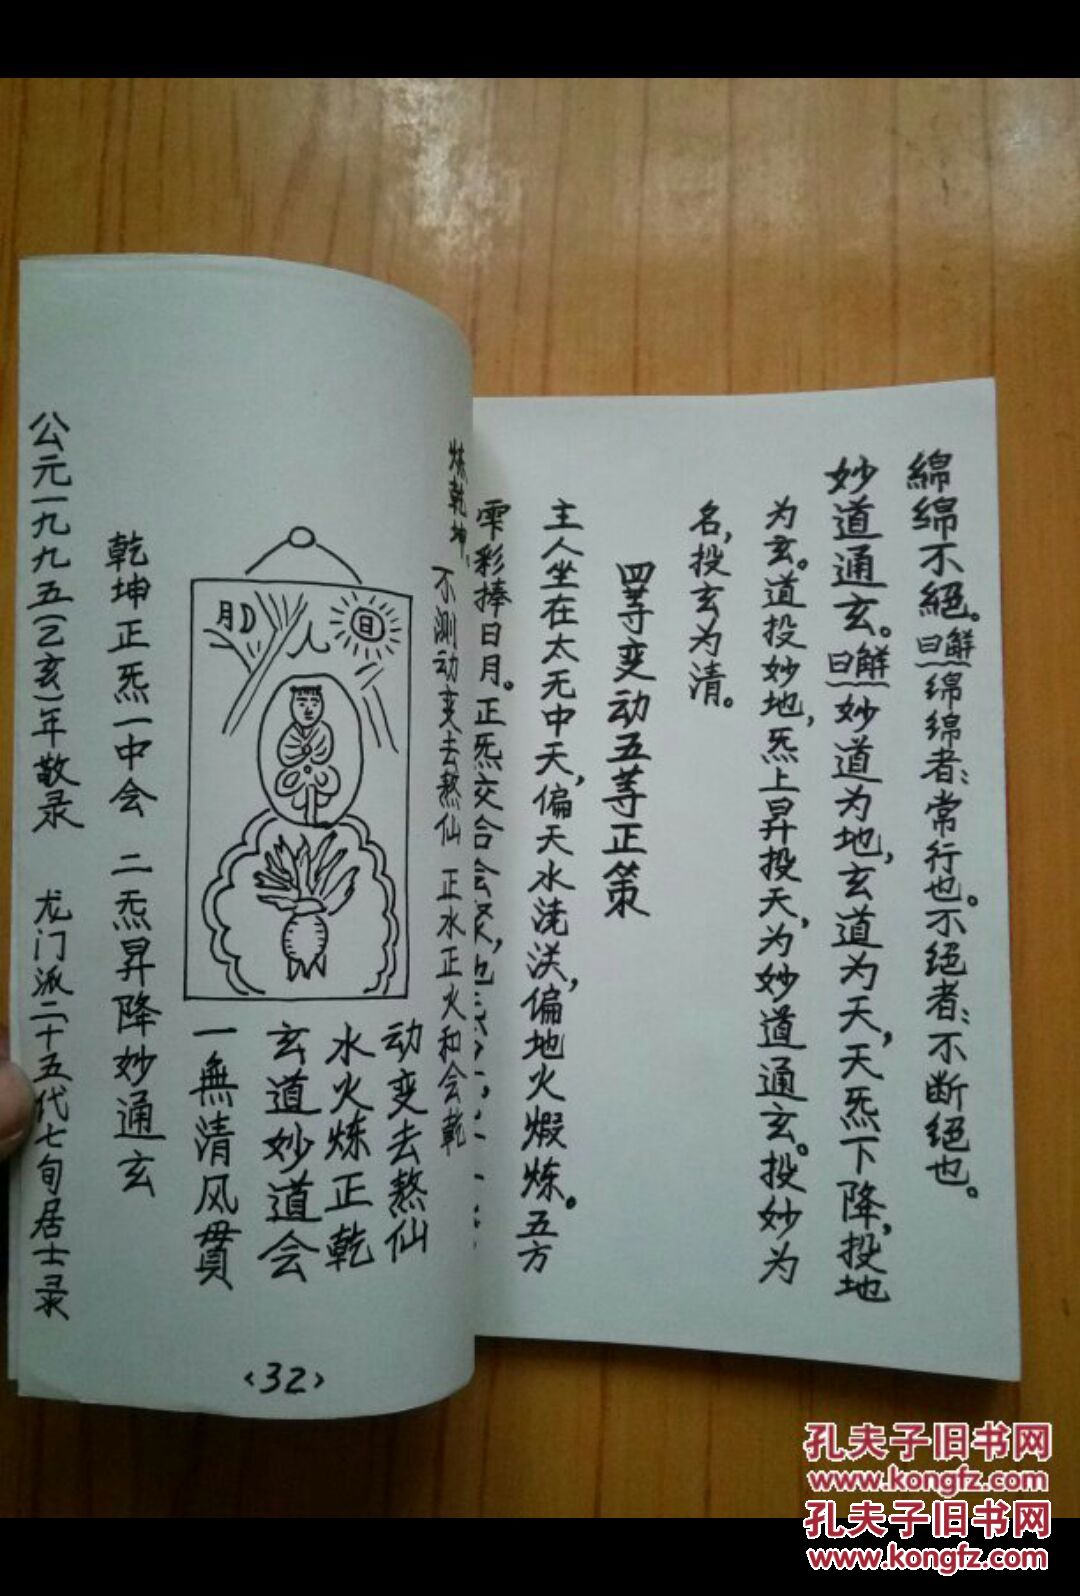 綿綿不絕。解曰綿綿者：常行也。不绝者：不断绝也。
妙道通玄。解曰妙道为地，玄道为天，天炁下降，投地
为玄。道投妙地，炁上昇投天，为妙道通玄。投妙为
名，投玄为清。
四等变动五等正策
主人坐在太无中天，偏天水洗
偏地火煅炼。五方
彩捧日月。正炁交合会
炼乾坤，
不测动变去熬仙 正水正火和会乾
月
人
日
动变去熬仙
水火炼正乾
玄道妙道会
一無清风貫
乾坤正炁一中会 二炁昇降妙通玄
公元一九九五(乙亥)年敬录 龙门派二十五代七旬居士录
<32>
孔夫子旧书网
www.kongfz.com
孔夫子旧书网
www.kongfz.com